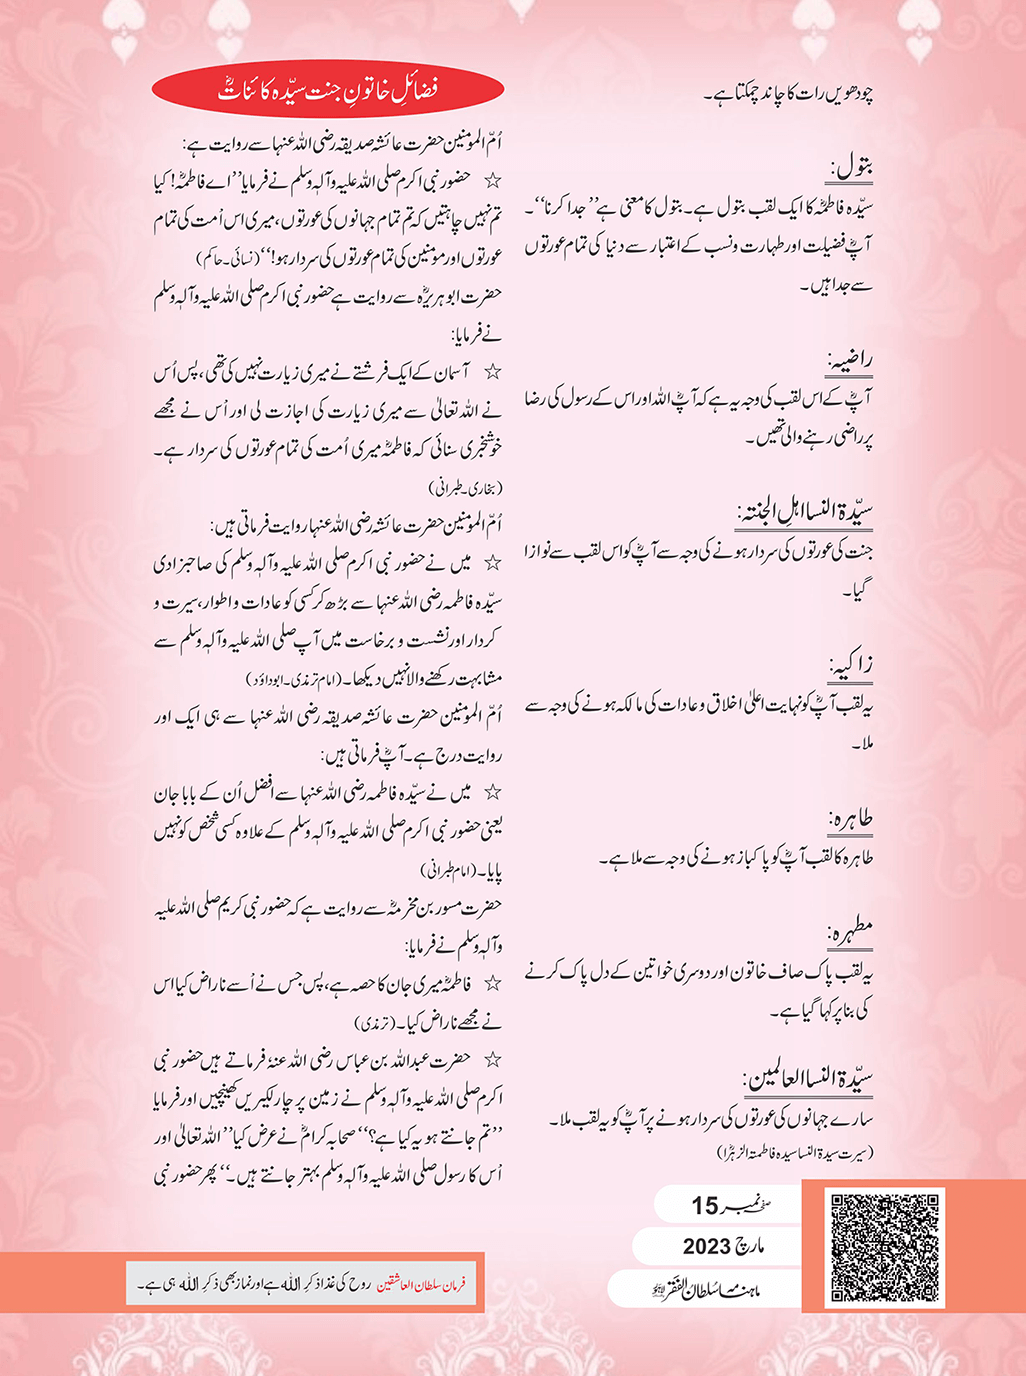 چودھویں رات کا چاند چمکتا ہے۔
بتول:
سیّدہ فاطمہؓ کا ایک لقب بتول ہے۔ بتول کا معنی ہے ’’جدا کرنا‘‘۔
آپؓ فضیلت اور طہارت و نسب کے اعتبار سے دنیا کی تمام عورتوں
سے جدا ہیں۔
راضیہ:
آپؓ کے اس لقب کی وجہ یہ ہے کہ آپؓ اللہ اور اس کے رسول کی رضا
پر راضی رہنے والی تھیں۔
سیّدۃ النسا اہلِ الجنتہ:
جنت کی عورتوں کی سردار ہونے کی وجہ سے آپؓ کو اس لقب سے نوازا
گیا۔
زاکیہ:
یہ لقب آپؓ کو نہایت اعلیٰ اخلاق و عادات کی مالکہ ہونے کی وجہ سے
ملا۔
طاہرہ:
طاہرہ کا لقب آپؓ کو پاکباز ہونے کی وجہ سے ملا ہے۔
مطہرہ:
یہ لقب پاک صاف خاتون اور دوسری خواتین کے دل پاک کرنے
کی بنا پر کہا گیا ہے۔
سیّدۃ النسا العالمین:
سارے جہانوں کی عورتوں کی سردار ہونے پر آپؓ کو یہ لقب ملا۔
(سیرت سیدۃ النسا سیدہ فاطمتہ الزہراؓ)
فضائلِ خاتونِ جنت سیّدہ کائناتؓ
اُمّ المومنین حضرت عائشہ صدیقہ رضی اللہ عنہا سے روایت ہے:
☆ حضور نبی اکرم صلی اللہ علیہ وآلہٖ وسلم نے فرمایا ’’اے فاطمہؓ! کیا
تم نہیں چاہتیں کہ تم تمام جہانوں کی عورتوں، میری اس اُمت کی تمام
عورتوں اور مومنین کی تمام عورتوں کی سردار ہو!‘‘ (نسائی۔ حاکم)
حضرت ابوہریرہؓ سے روایت ہے حضور نبی اکرم صلی اللہ علیہ وآلہٖ وسلم
نے فرمایا:
☆ آسمان کے ایک فرشتے نے میری زیارت نہیں کی تھی، پس اُس
نے اللہ تعالیٰ سے میری زیارت کی اجازت لی اور اُس نے مجھے
خوشخبری سنائی کہ فاطمہؓ میری اُمت کی تمام عورتوں کی سردار ہے۔
(بخاری۔ طبرانی)
اُمّ المومنین حضرت عائشہ رضی اللہ عنہا روایت فرماتی ہیں:
☆ میں نے حضور نبی اکرم صلی اللہ علیہ وآلہٖ وسلم کی صاحبزادی
سیّدہ فاطمہ رضی اللہ عنہا سے بڑھ کر کسی کو عادات و اطوار، سیرت و
کردار اور نشست و برخاست میں آپ صلی اللہ علیہ وآلہٖ وسلم سے
مشابہت رکھنے والا نہیں دیکھا۔ (امام ترمذی۔ ابوداؤد)
اُمّ المومنین حضرت عائشہ صدیقہ رضی اللہ عنہا سے ہی ایک اور
روایت درج ہے۔ آپؓ فرماتی ہیں:
☆ میں نے سیّدہ فاطمہ رضی اللہ عنہا سے افضل اُن کے بابا جان
یعنی حضور نبی اکرم صلی اللہ علیہ وآلہٖ وسلم کے علاوہ کسی شخص کو نہیں
پایا۔ (امام طبرانی)
حضرت مسور بن مخرمہؓ سے روایت ہے کہ حضور نبی کریم صلی اللہ علیہ
وآلہٖ وسلم نے فرمایا:
☆ فاطمہؓ میری جان کا حصہ ہے، پس جس نے اُسے ناراض کیا اس
نے مجھے ناراض کیا۔ (ترمذی)
☆ حضرت عبداللہ بن عباس رضی اللہ عنہٗ فرماتے ہیں حضور نبی
اکرم صلی اللہ علیہ وآلہٖ وسلم نے زمین پر چار لکیریں کھینچیں اور فرمایا
’’تم جانتے ہو یہ کیا ہے؟‘‘ صحابہ کرامؓ نے عرض کیا ’’اللہ تعالیٰ اور
اُس کا رسول صلی اللہ علیہ وآلہٖ وسلم بہتر جانتے ہیں۔‘‘ پھر حضور نبی
صفحہ نمبر 15
مارچ 2023
ماہنامہ سُلطان الفقر لاہور
فرمان سلطان العاشقین روح کی غذا ذکرِ اللہ ہے اور نماز بھی ذکرِ اللہ ہی ہے۔